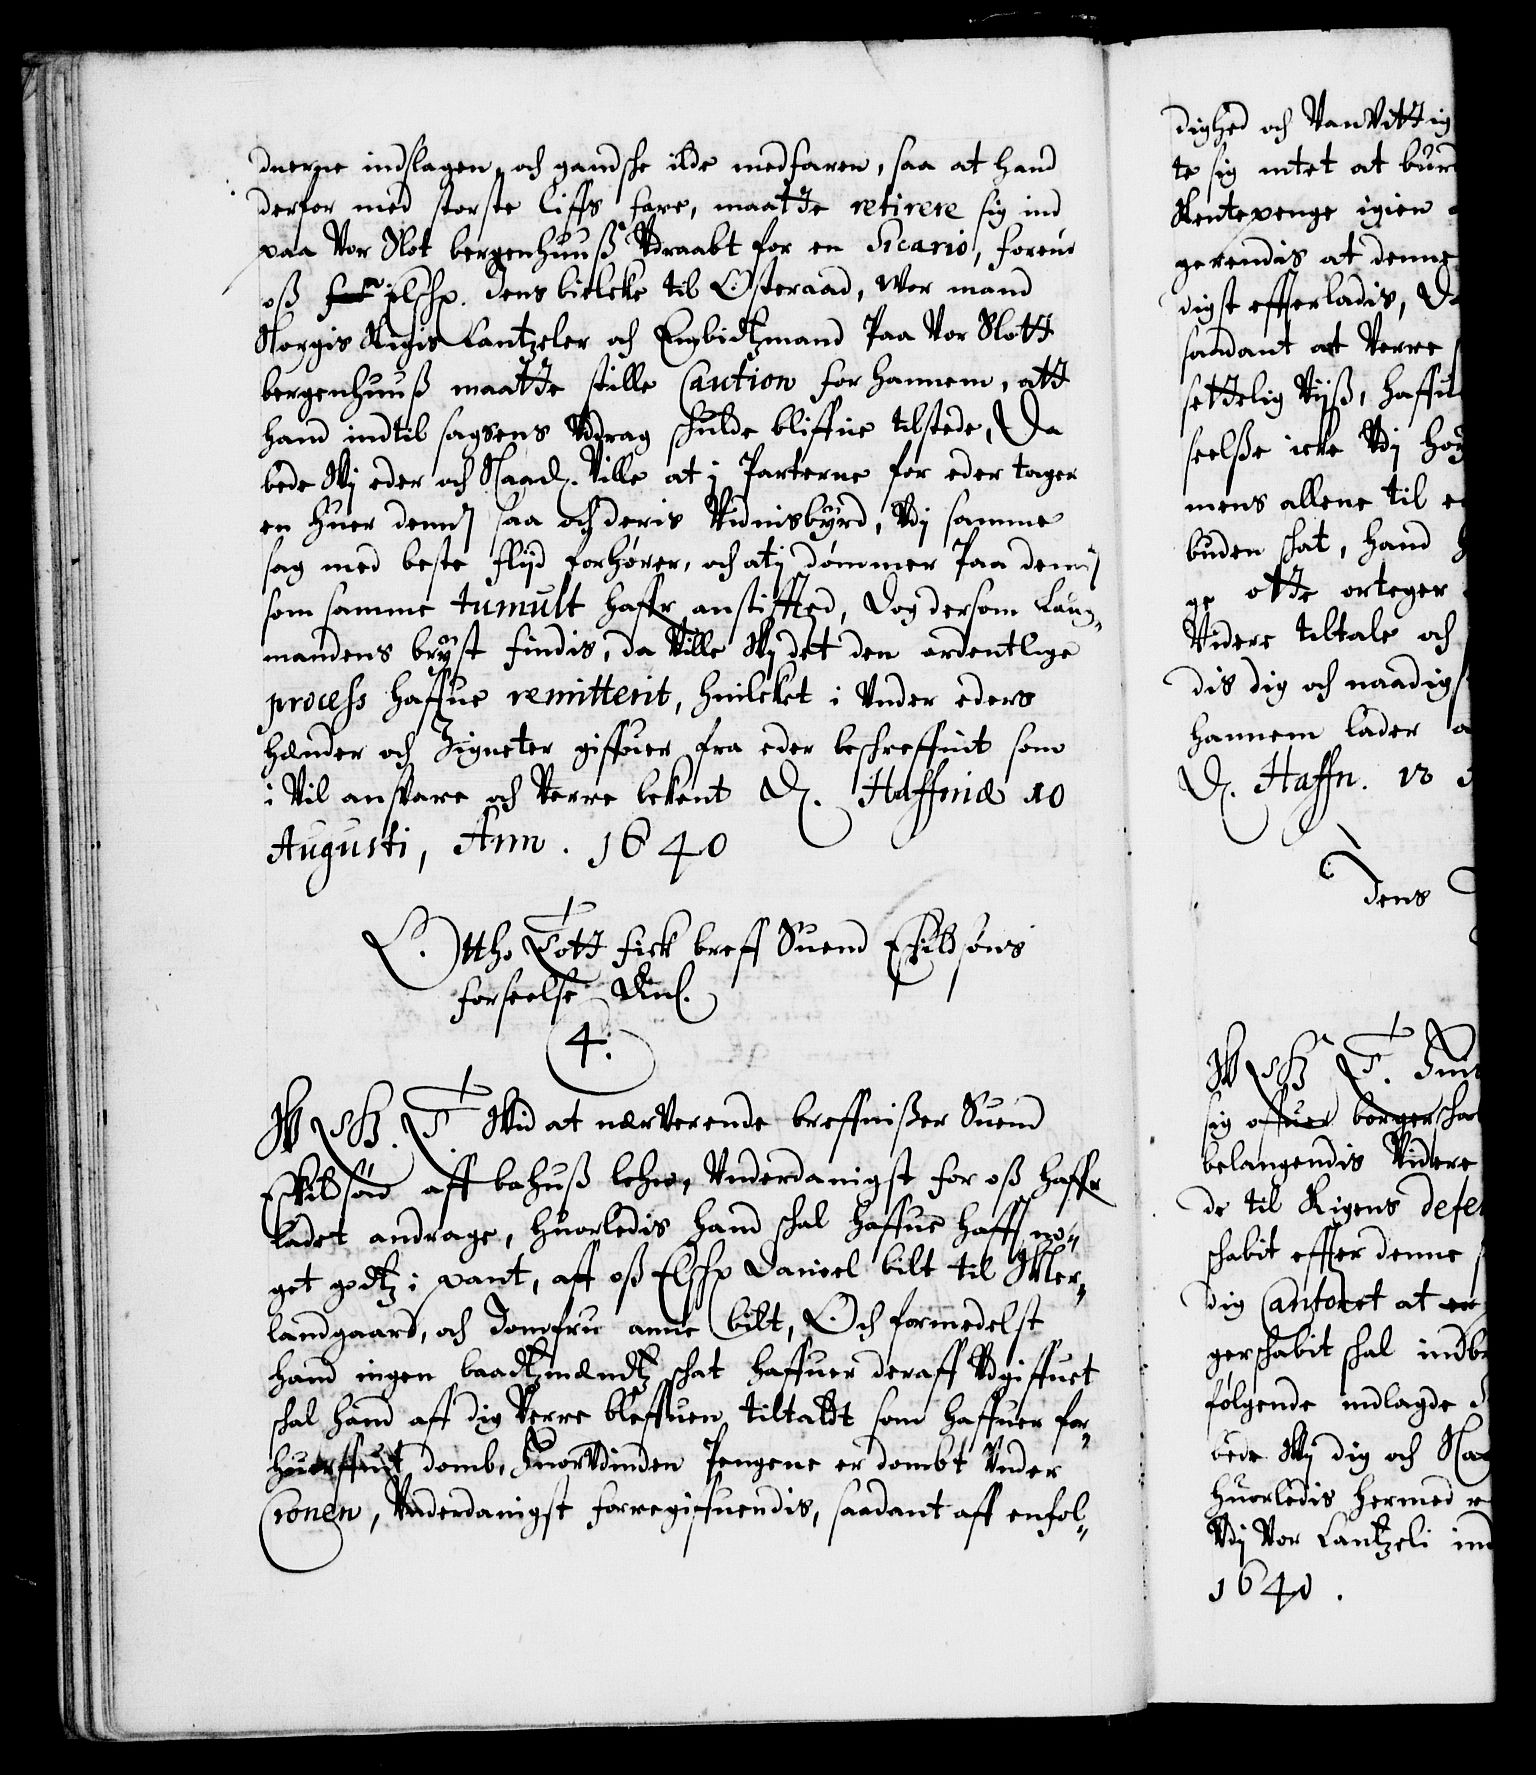 duerne indslagen, och gandske ilde medfaren, saa at hand
derfor med storste liffs fare, maatte retirere sig ind
paa Vor Slot bergenhuuß Vdraabt for en Sicario, foruden
oß Elshe. Jens bielcke til Østeraad, Wor mand
Norgis Rigis Cantzeler och Embidtzmand Paa Vor Slott
bergenhuuß maatte stille Caution for hannem, att
hand indtil sagsens Vddrag skulde bliffue tilstede, Da
bede Wij eder och Naad. Ville at j Parterne for eder tager
en huer dennem saa och deris Vidnisbyrd, Vdj samme
sag med beste flijd forhører, och atj dømmer Paa dennem
som samme tumult haffr anstiffted, Dog dersom Laug„
mandens brÿst findis, da Ville Wj det den ordentlige
process haffue remitterit, huilcket i Vnder eders
hænder och Zigneter giffuer fra eder beskreffuit som
i Vil ansvare och Verre bekent D. Haffniæ 10
Augusti, Ann. 1640
Ottho Tott fick breff Suend Eskildsøns
forseelse Anl.
4.
W S G. T. Wid at nærVerende breffuißer Suend
Eskildsøn aff bahuß lehn, Vnderdanigst for oß haffr
ladet andrage, huorledis hand schal haffue hafft no„
get godtz i pant, aff oß Elshe Daniel bilt til Mker„
landgaard, och Jomfru anne bilt, Och formedelst
hand ingen baadtzmændtz schat haffuer deraff Vdgiffuet
schal hand aff dig Verre bleffuen tiltaldt som haffuer for„
huerffuit domb, huorVdinden Pengene er dombt Vnder
Cronen, Vnderdanigst forregiffuendis, saadant aff enfol„
dighed och VanVittig
te sig intet at burd
Rentepenge igien
gerendis at denne
digst effterladis, Da
saadant at Verre
settelig Vijß, haffu
seelße icke Vdj hoy
mens allene til e
buden schat, hand
ge otte orteger
Videre tiltale och
dis dig och naadigst
hannem lader
D. Haffn. 13
Jens
W S G T.
sig offuer borgerscha
belangendis Videre
de til Rigens defen
schabit effter denne
dig Cantoret at
gerschabit schal indbe
følgende indlagde
bede Wj dig och Naa
huorledis hermed
Vdj Vor Cantzeli ind
1640.